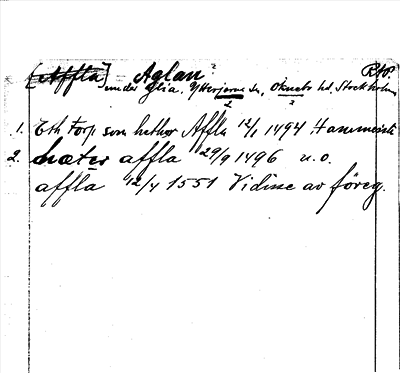 [Affla] Aglan? RAP.
under Glia, Ytterjärna sn, Öknebo hd. Stockholms
2 2
1. Eth torp som hether Affla 12/1 1494 Hammersta
2. hæter affla 29/9 1496 u.o.
affla 12/4 1551 Vidisse av föreg.